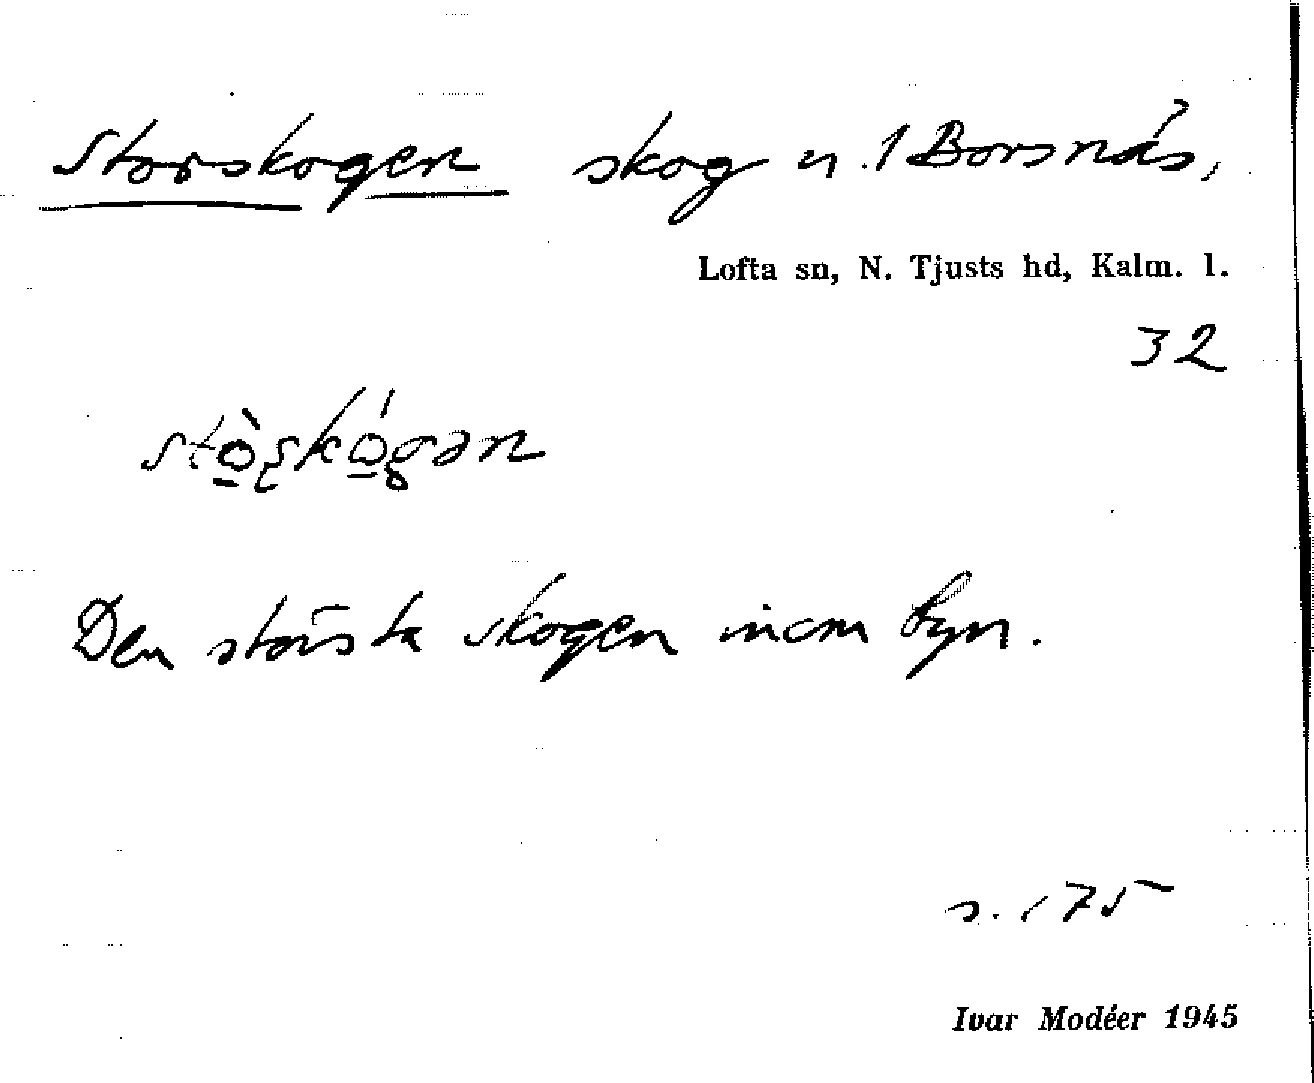 Storskogen skog u. 1 Borsnäs,
Lofta sn, N. Tjusts hd, Kalm. l.
32
stò̱ʂkó̱gən
Den största skogen inom byn.
s. 175
Ivar Modéer 1945